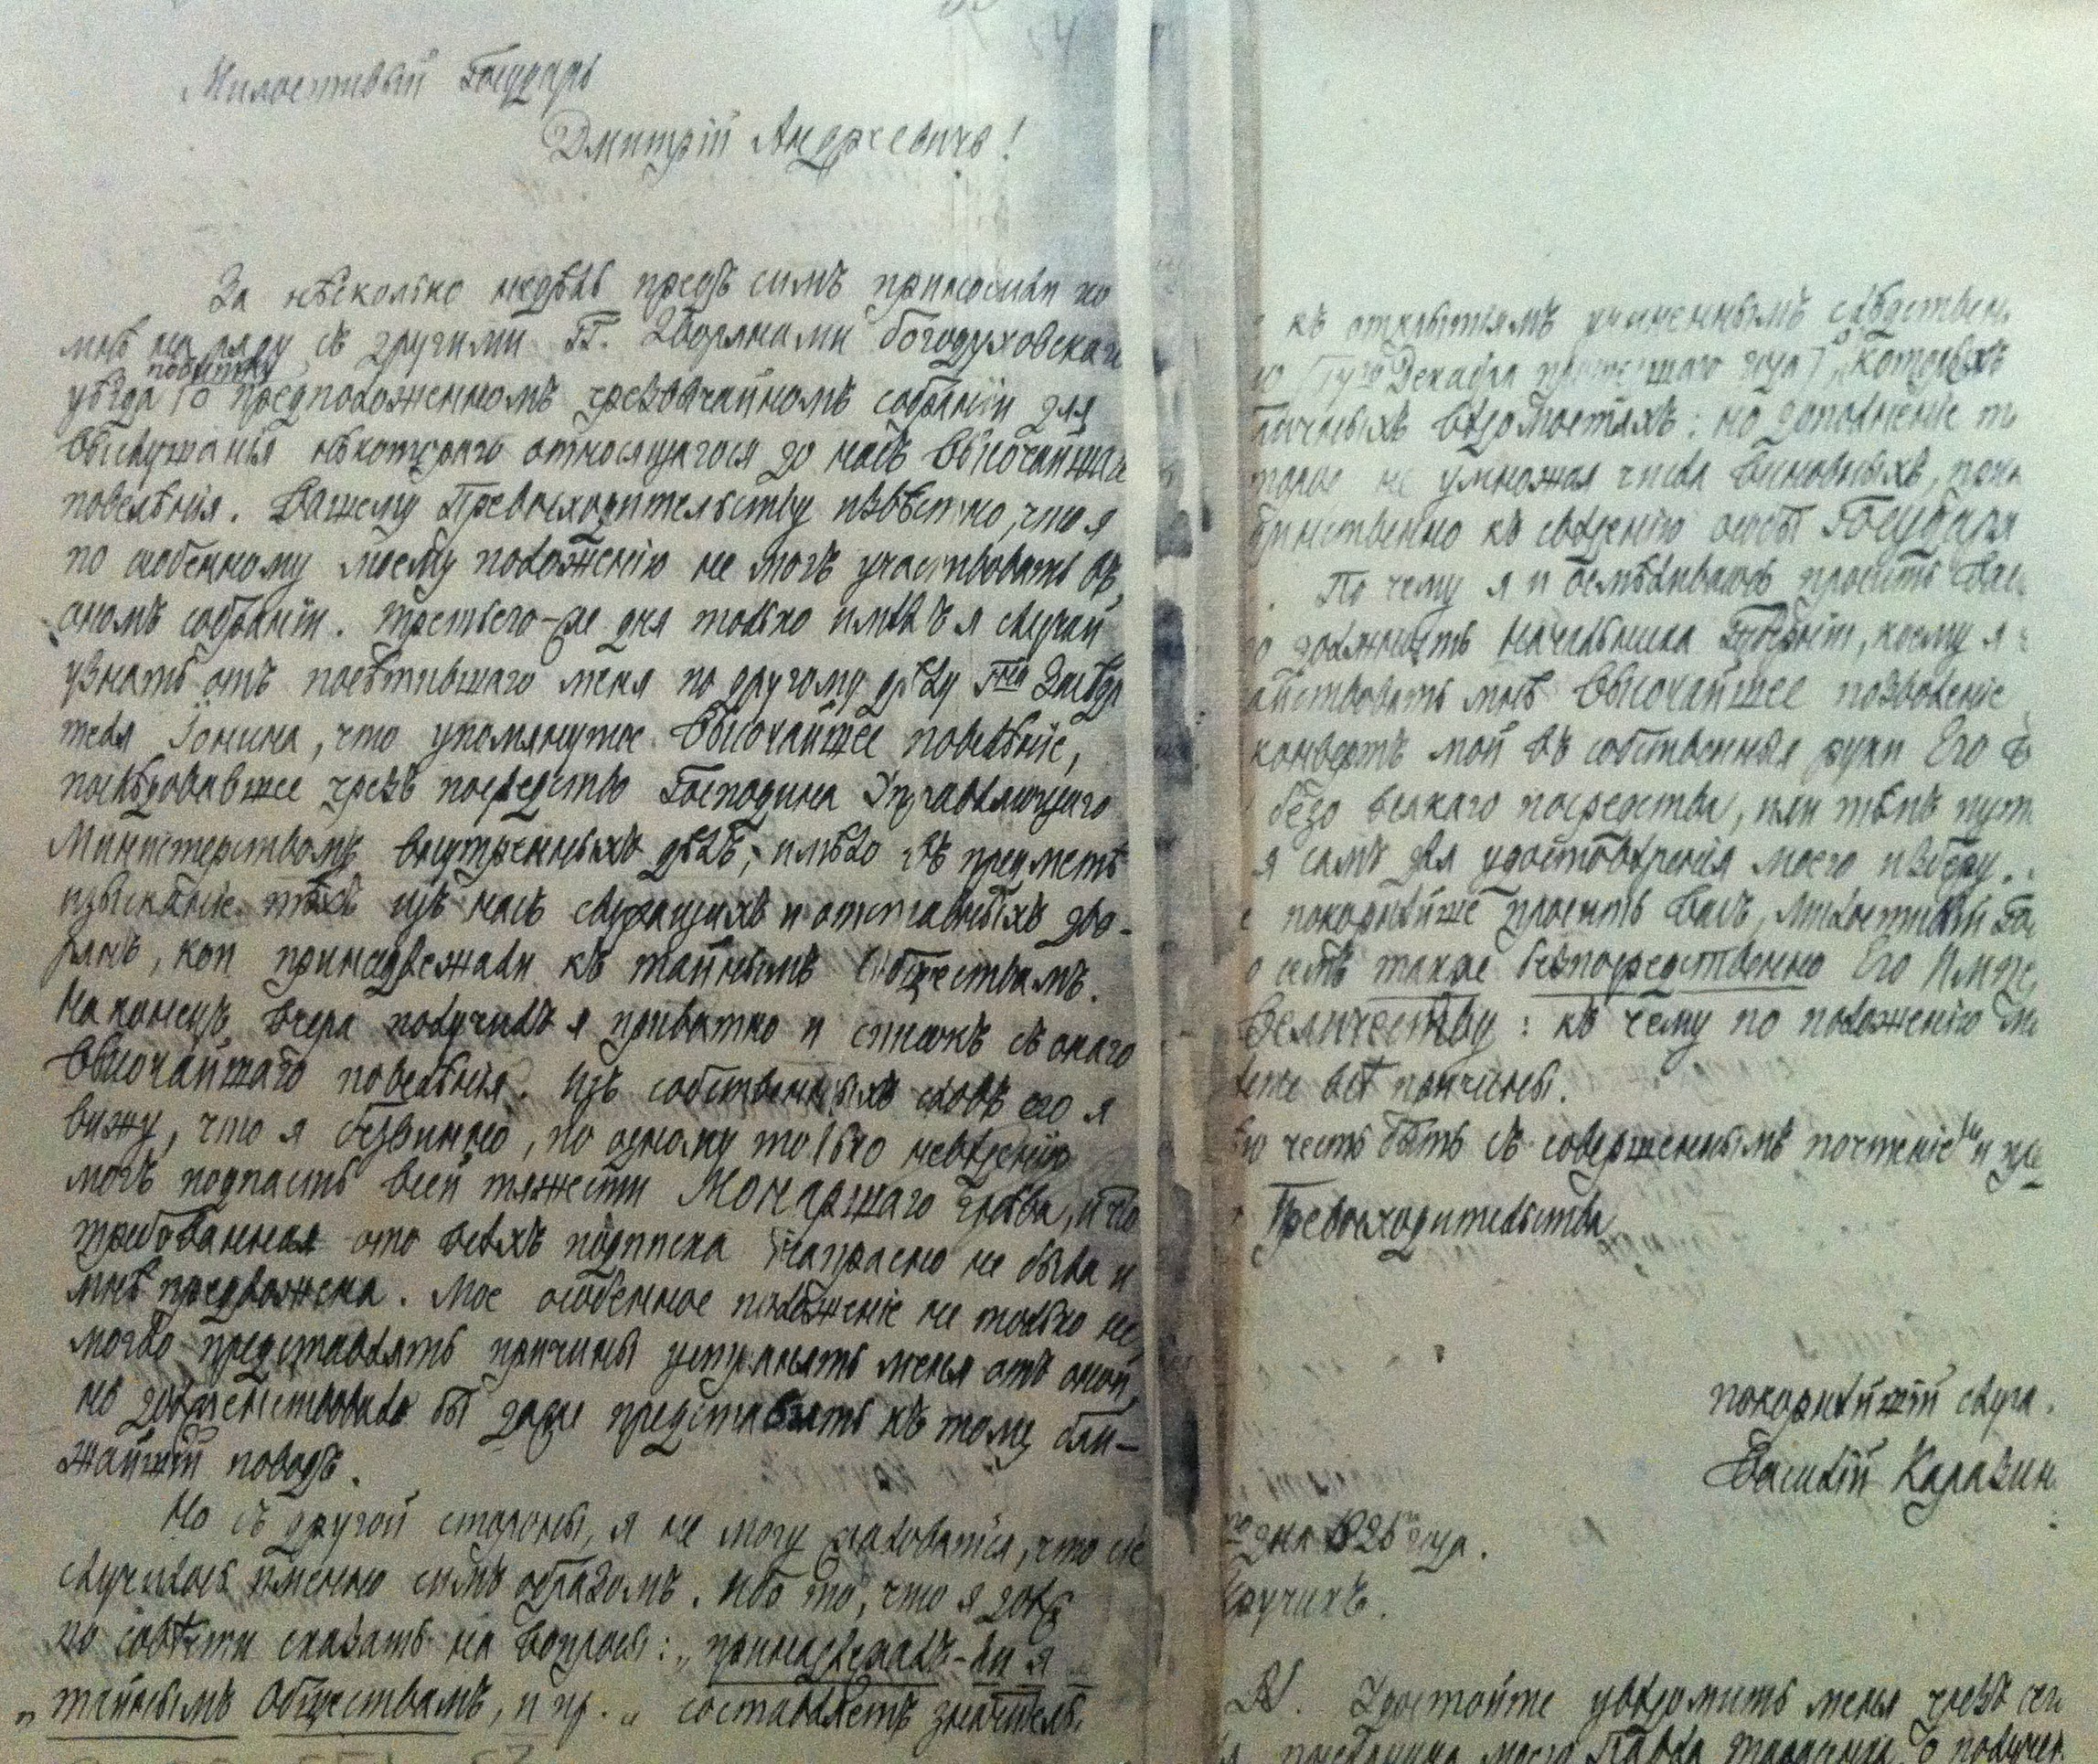 Милостивый Государь
Дмитрій Андреевичь!
За нѣсколько недѣль предъ симъ приносили ко
мнѣ на ряду съ другими ГГ. Дворянами богодуховскаго
повѣстку
уѣзда о предположенномъ чрезвычайномъ собраніи для
выслушанья нѣкотораго относящагося до насъ Высочайшаго
повелѣнія. Вашему Превосходительству извѣстно, что я
по особенному моему положенію не могъ участвовать въ
ономъ собраніи. Третьего-же дня только имѣлъ я случай
узнать отъ посѣтившаго меня по другому дѣлу Гна Засѣда
теля Іонина, что упомянутое Высочайшее повелѣніе,
послѣдовавшее чрезъ посредство Господина Управляющаго
Министерствомъ внутреннихъ дѣлъ, имѣло въ предметѣ
изысканіе тѣхъ изъ насъ служащихъ и отставныхъ дво-
рянъ, кои принадлежали къ тайнымъ Обществамъ.
На конецъ вчера получилъ я приватно и списокъ съ онаго
Высочайшаго повелѣнія. Изъ собственныхъ словъ его я
вижу, что я безвинно, по одному только невѣденію
могъ подпасть всей тяжести Монаршаго гнѣва, и что
требованная ото всѣхъ подписка напрасно не была и
мнѣ предложена. Мое особенное положеніе не только не
могло представлять причины устранять меня отъ оной,
но долженствовало бы даже представить къ тому бли-
жайшій поводъ.
Но съ другой стороны, я не могу жаловаться, что сіе
случилось именно симъ образомъ. Ибо то, что я долж
по совѣсти сказать на вопросъ: „принадлежалъ-ли я
„тайнымъ Обществамъ, и пр.“ составляетъ значитель
къ открытіямъ учиненнымъ слѣдствен
Декабря прошедшаго года которыхъ
личныхъ вѣдомостяхъ: но дополненіе
торое не умножая числа виновныхъ,
динственно къ свѣденію особы Государя
По чему я и осмѣливаюсь просить Вас
должность Начальника Губерніи, коему я
айствовать мнѣ Высочайшее позволеніе
конвертъ мой въ собственныя руки Его
безо всякаго посредства, или тѣмъ пут
я самъ для удостовѣренія моего изберу.
покорнѣйше просить Васъ, Милостивый Го
о семъ также безпосредственно Его Импе
Величеству: къ чему по положенію
всѣ причины.
честь быть съ совершеннымъ почтеніемъ и пре
Превосходительства
покорнѣйшій слуга.
Василій Каразин
дня 1826 года.
Кручикъ.
Удостойте увѣдомить меня чрезъ сего
моего Павла о получен